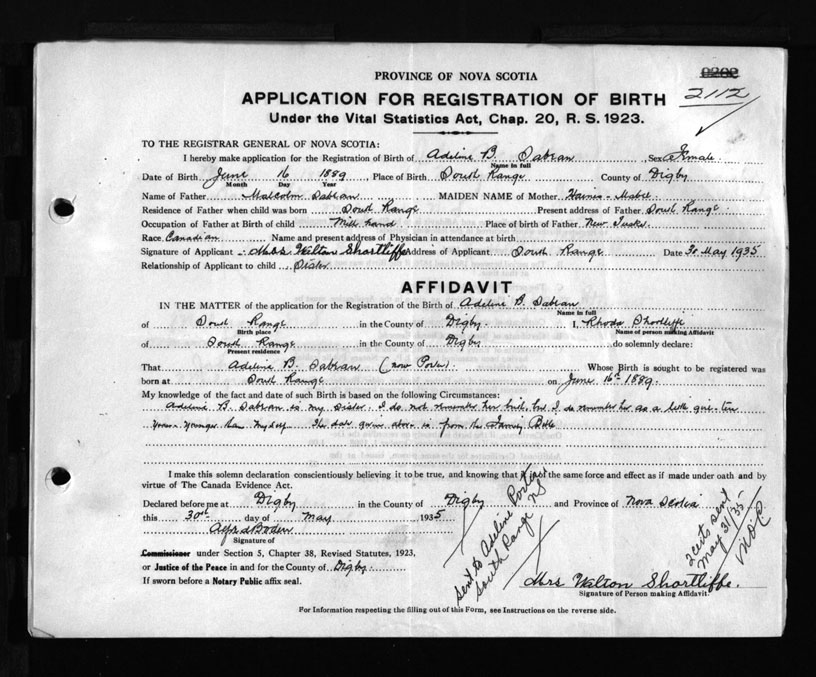 PROVINCE OF NOVA SCOTIA
APPLICATION FOR REGISTRATION OF BIRTH 2112
Under the Vital Statistics Act, Chap. 20, R. S. 1923.
TO THE REGISTRAR GENERAL OF NOVA SCOTIA:
I hereby make application for the Registration of Birth of Adeline B. Sabean Sex Female
Name in full
Date of Birth June 16 1889 Place of Birth South Range County of Digby
Month Day Year
Name of Father Malcolm Sabean MAIDEN NAME of Mother Haines - Mabel
Residence of Father when child was born South Range Present address of Father South Range
Occupation of Father at Birth of child Mill hand Place of birth of Father New Tusket
Race Canadian Name and present address of Physician in attendance at birth
Signature of Applicant Mrs Walton Shortliffe Address of Applicant South Range Date 30 May 1935
Relationship of Applicant to child Sister
AFFIDAVIT
IN THE MATTER of the application for the Registration of the Birth of Adeline B. Sabean
Name in full
of South Range in the County of Digby I, Rhoda Shortliffe
Birth place Name of person making Affidavit
of South Range in the County of Digby do solemnly declare:
Present residence
That Adeline B. Sabean (now Porter) Whose Birth is sought to be registered was
born at South Range on June 16th 1889.
My knowledge of the fact and date of such Birth is based on the following Circumstances:
Adeline B. Sabean is my sister. I do not remember her birth, but I do remember her as a little girl ten
years younger than myself. The date given above is from the Family Bible
I make this solemn declaration conscientiously believing it to be true, and knowing that it is of the same force and effect as if made under oath and by
virtue of The Canada Evidence Act.
Declared before me at Digby in the County of Digby and Province of Nova Scotia
this 30th day of May 1935
Signature of
Commissioner under Section 5, Chapter 38, Revised Statutes, 1923,
or Justice of the Peace in and for the County of Digby
If sworn before a Notary Public affix seal.
Sent to Adeline Porter
South Range NS
2 certs sent
May 31/35
Mrs Walton Shortliffe
Signature of Person making Affidavit.
For Information respecting the filling out of this Form, see Instructions on the reverse side.